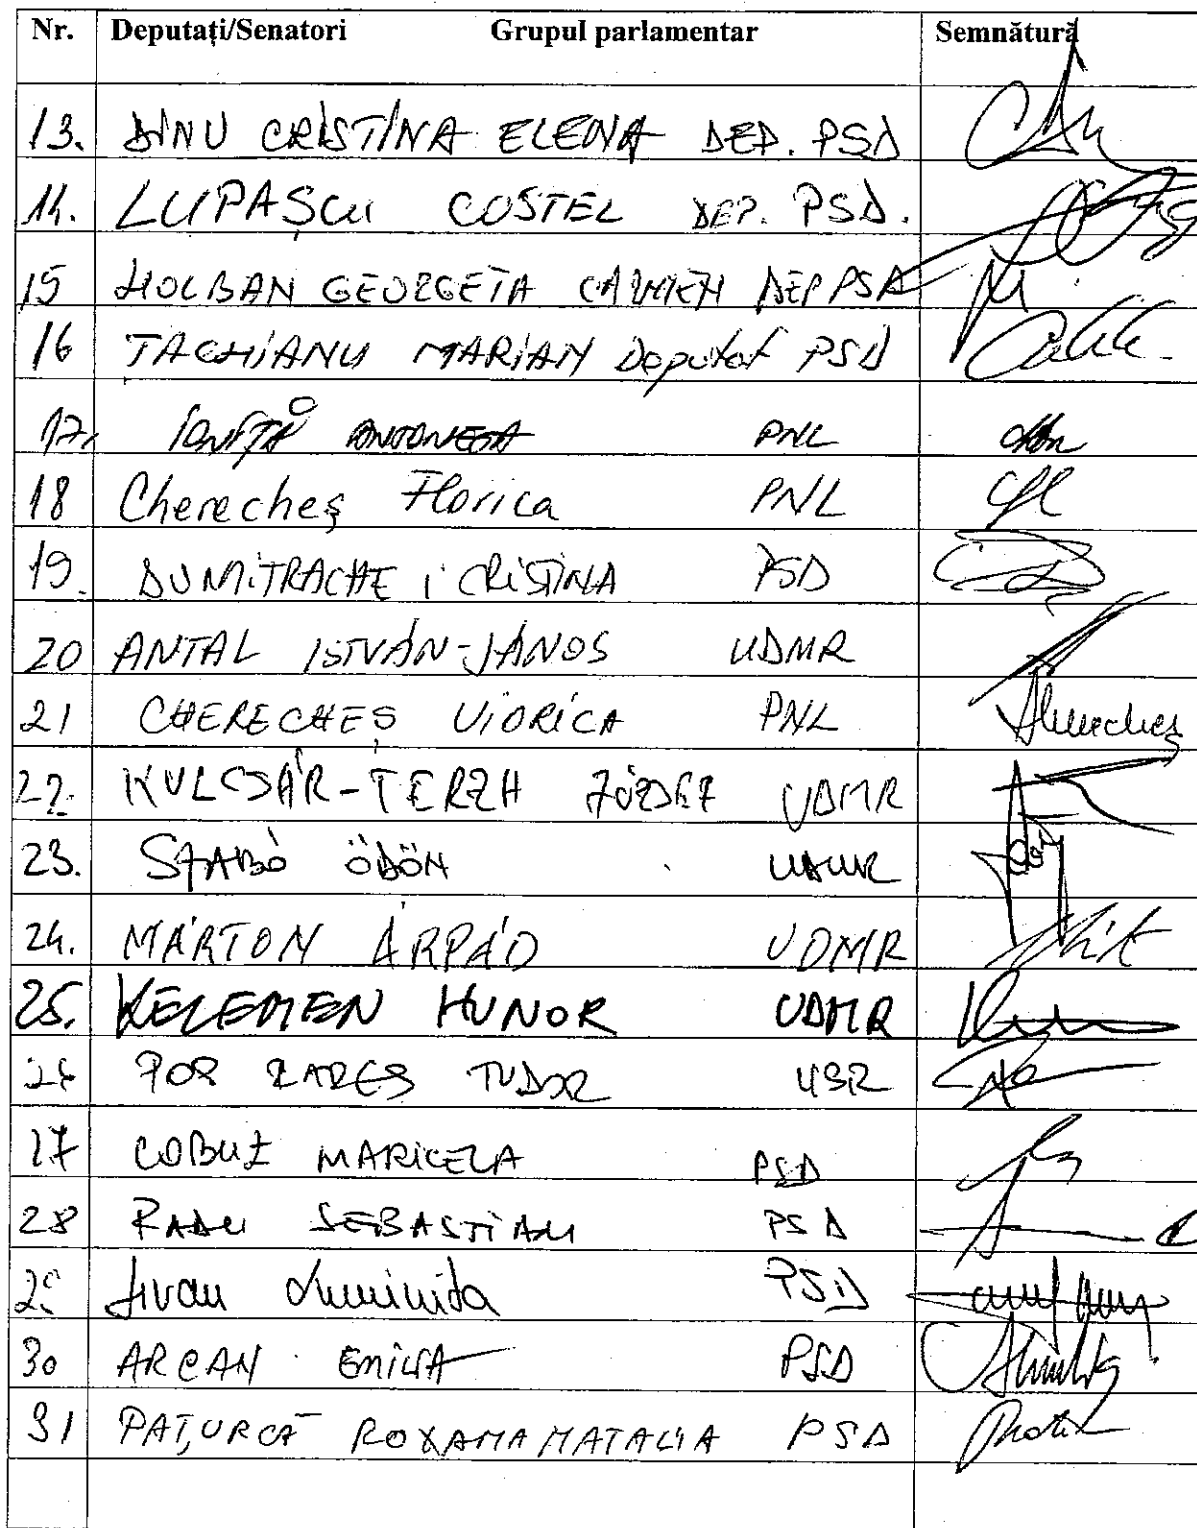 Nr. Deputați/Senatori Grupul parlamentar Semnătură
13. DINU CRISTINA ELENA DEP. PSD
14. LUPAȘCU COSTEL DEP. PSD.
15 HOLBAN GEORGETA CARMEN DEP PSD
16 TACHIANU MARIAN Deputat PSD
17. IONIȚĂ ANTONETA PNL
18 Cherecheș Florica PNL
19. DUMITRACHE I CRISTINA PSD
20 ANTAL ISTVÁN-JÁNOS UDMR
21 CHERECHEȘ VIORICA PNL Cherecheș
22. KULCSÁR-TERZA JÓZSEF UDMR
23. SZABÓ ÖDÖN UDMR
24. MÁRTON ÁRPÁD UDMR
25. KELEMEN HUNOR UDMR
26 POP RAREȘ TUDOR USR
27 COBUZ MARICELA PSD
28 RADU SEBASTIAN PSD
29. Jivan Luminita PSD
30 ARCAN EMILIA PSD
31 PAȚURCĂ ROXANA NATALIA PSD